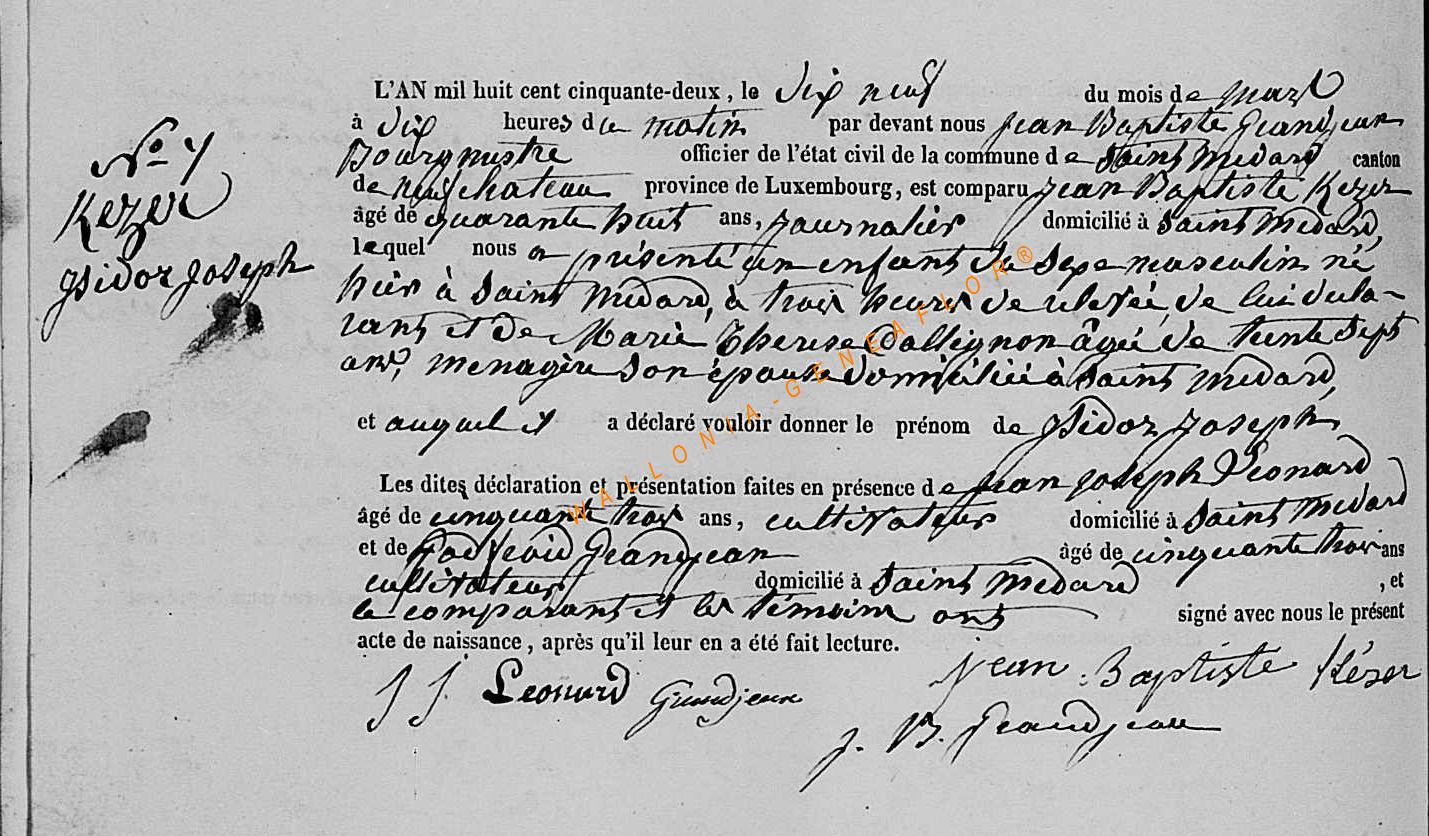 N° 7
Kezer
Isidor Joseph
L'AN mil huit cent cinquante-deux, le dix neuf du mois de mars
à dix heures du matin par devant nous Jean Baptiste Grandjean
Bourgmestre officier de l'état civil de la commune de Saint Medard canton
de neufchateau province de Luxembourg, est comparu Jean Baptiste Kezer
âgé de quarante huit ans, journalier domicilié à Saint Medard,
lequel nous a présenté un enfant du sexe masculin né
hier à Saint Medard, à trois heures de relevée, de lui decla-
rant et de Marie Therese Dallignon âgée de trente sept
ans, menagère son épouse domiciliée à Saint Medard,
et auquel il a déclaré vouloir donner le prénom de Isidor Joseph
Les dites déclaration et présentation faites en présence de Jean Joseph Leonard
âgé de cinquante trois ans, cultivateur domicilié à Saint Medard
et de Godefroid Grandjean âgé de cinquante trois ans
cultivateur domicilié à Saint Medard , et
le comparant et les témoins ont signé avec nous le présent
acte de naissance, après qu'il leur en a été fait lecture.
J J. Leonard Grandjean Jean Baptiste Kézer
J. B. Grandjean
WALLONIA-GENEAFLOR®